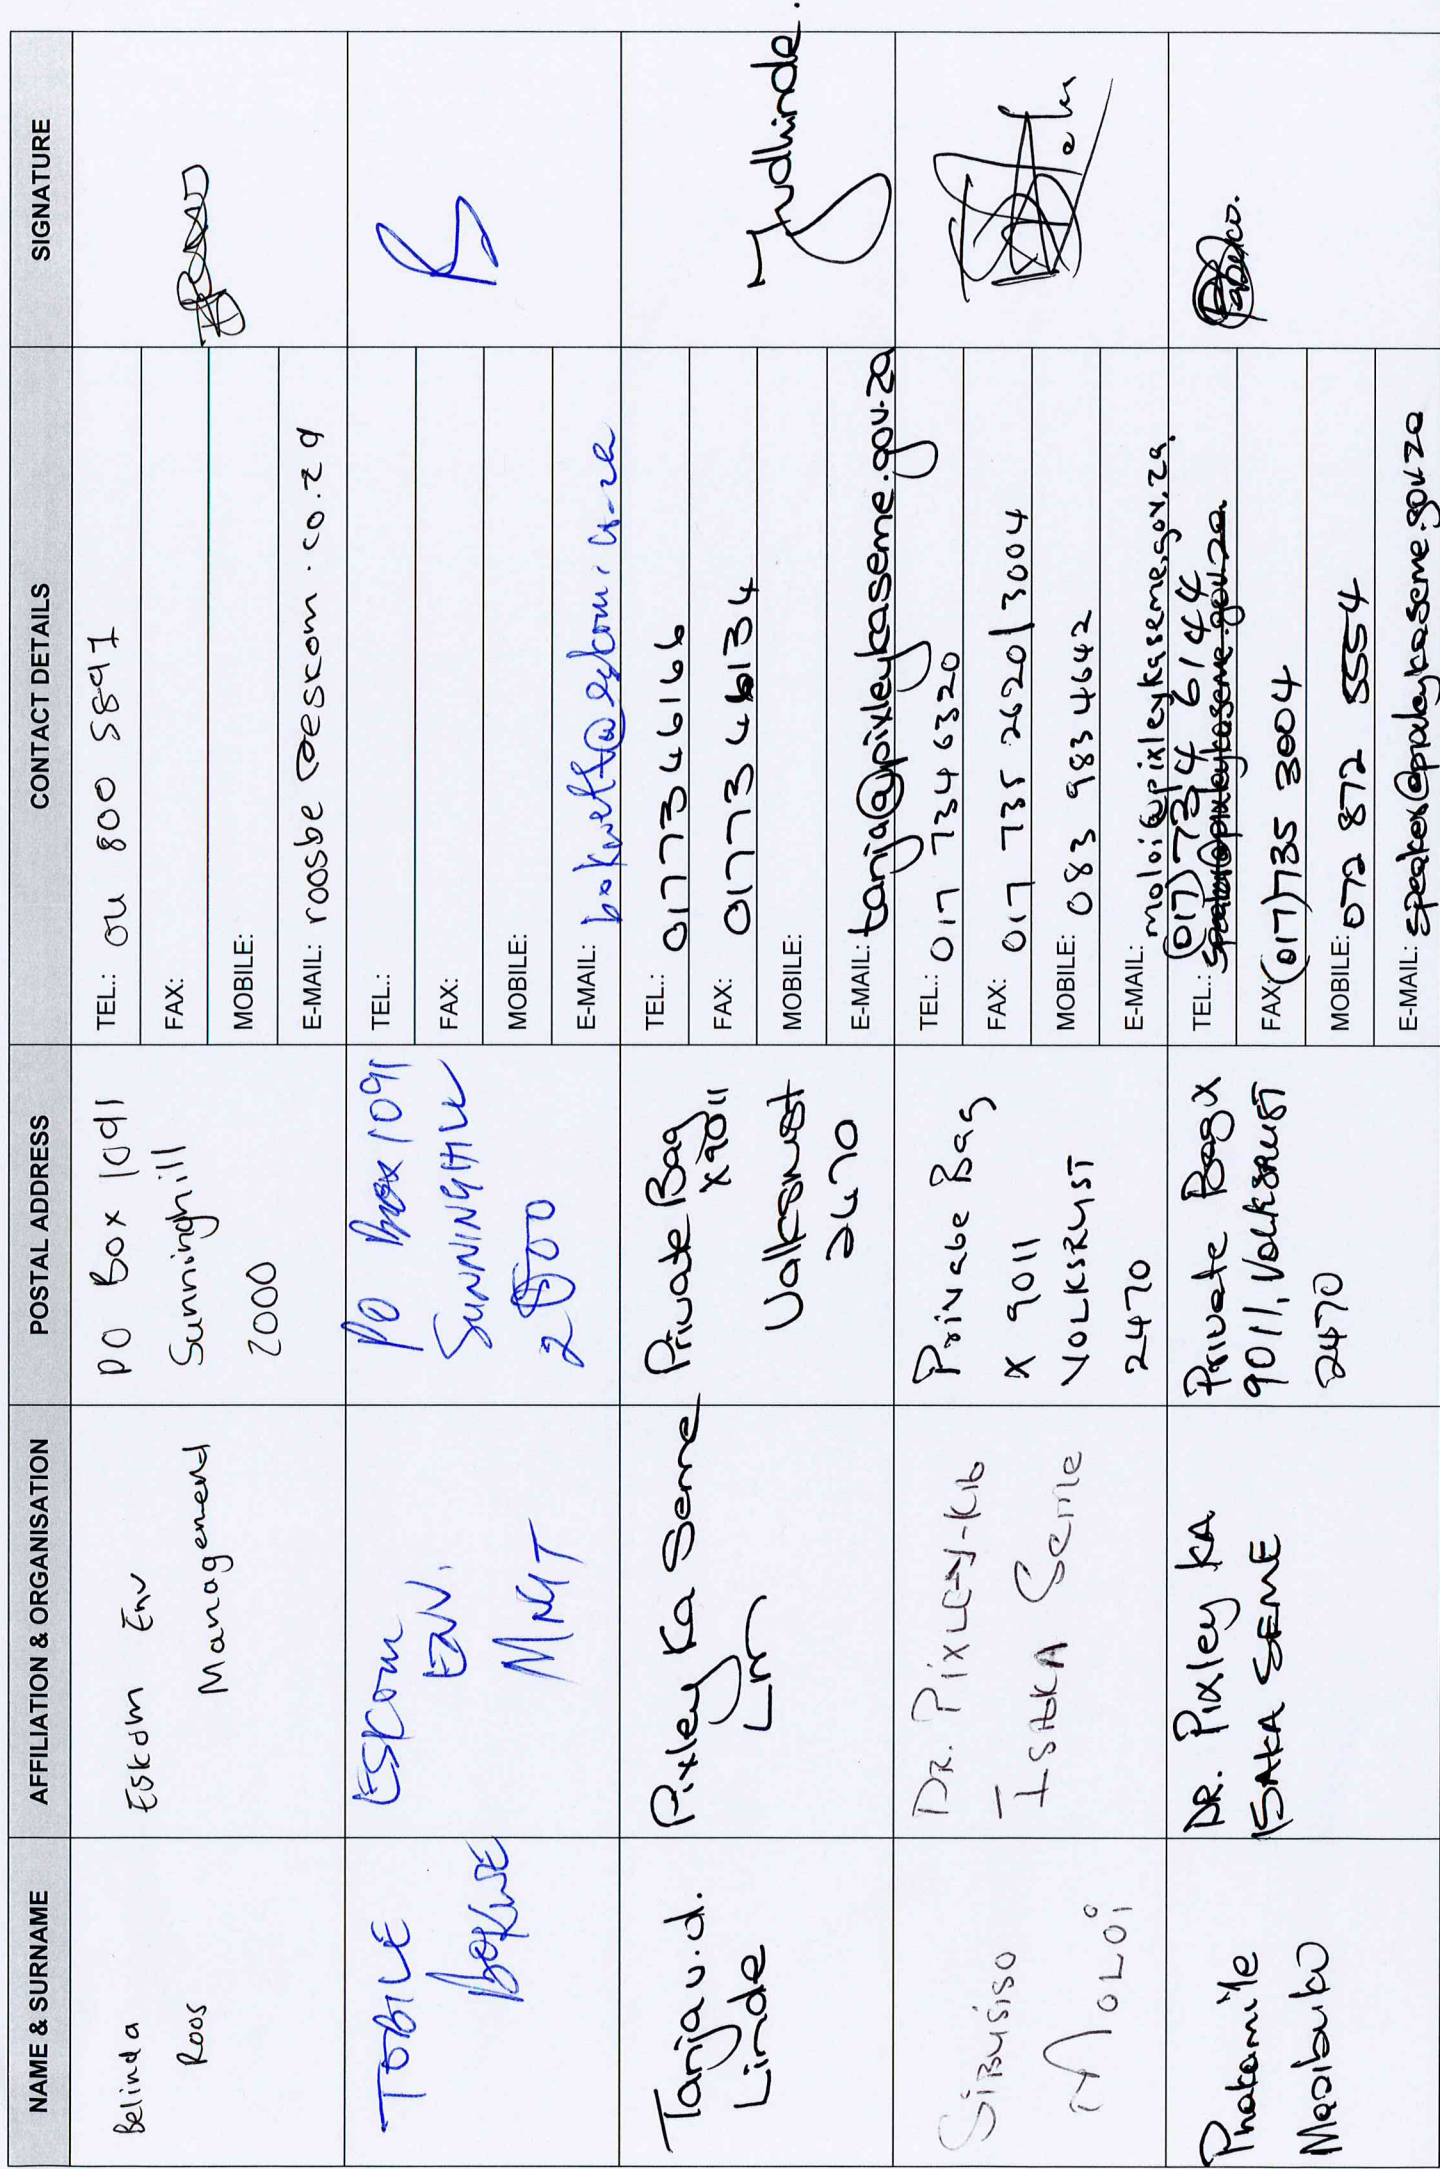 NAME & SURNAME
AFFILIATION & ORGANISATION
POSTAL ADDRESS
CONTACT DETAILS
SIGNATURE
Belinda
Roos
Eskom Env
Management
PO Box 1091
Sunninghill
2000
TEL.: 011 800 5891
FAX:
MOBILE:
E-MAIL: roosbe@eskom.co.za
TOBILE
BOKWE
ESKOM
ENV.
MNGT
PO Box 1091
SUNNINGHILL
2000
TEL.:
FAX:
MOBILE:
E-MAIL: bokwett@eskom.co.za
Tanja v.d.
Linde
Pixley Ka Seme
Lm
Private Bag
X9011
Volksrust
2470
TEL.: 0177346166
FAX: 0177346134
MOBILE:
E-MAIL: tanja@pixleykaseme.gov.za
Sibusiso
MOLOi
DR. PIXLEY-KA
ISAKA Seme
Private Bag
X 9011
VOLKSRUST
2470
TEL.: 017 734 6320
FAX: 017 735 2620/3004
MOBILE: 083 983 4642
E-MAIL: moloi@pixleykaseme.gov.za.
Phakamile
Masibuko
DR. Pixley KA
ISAKA SEME
Private Bag X
9011, VOLKSRUST
2470
(017) 734 6144
TEL.: speaker@pixleykaseme.gov.za
FAX: (017) 735 3004
MOBILE: 072 872 5554
E-MAIL: speaker@pixleykaseme.gov.za